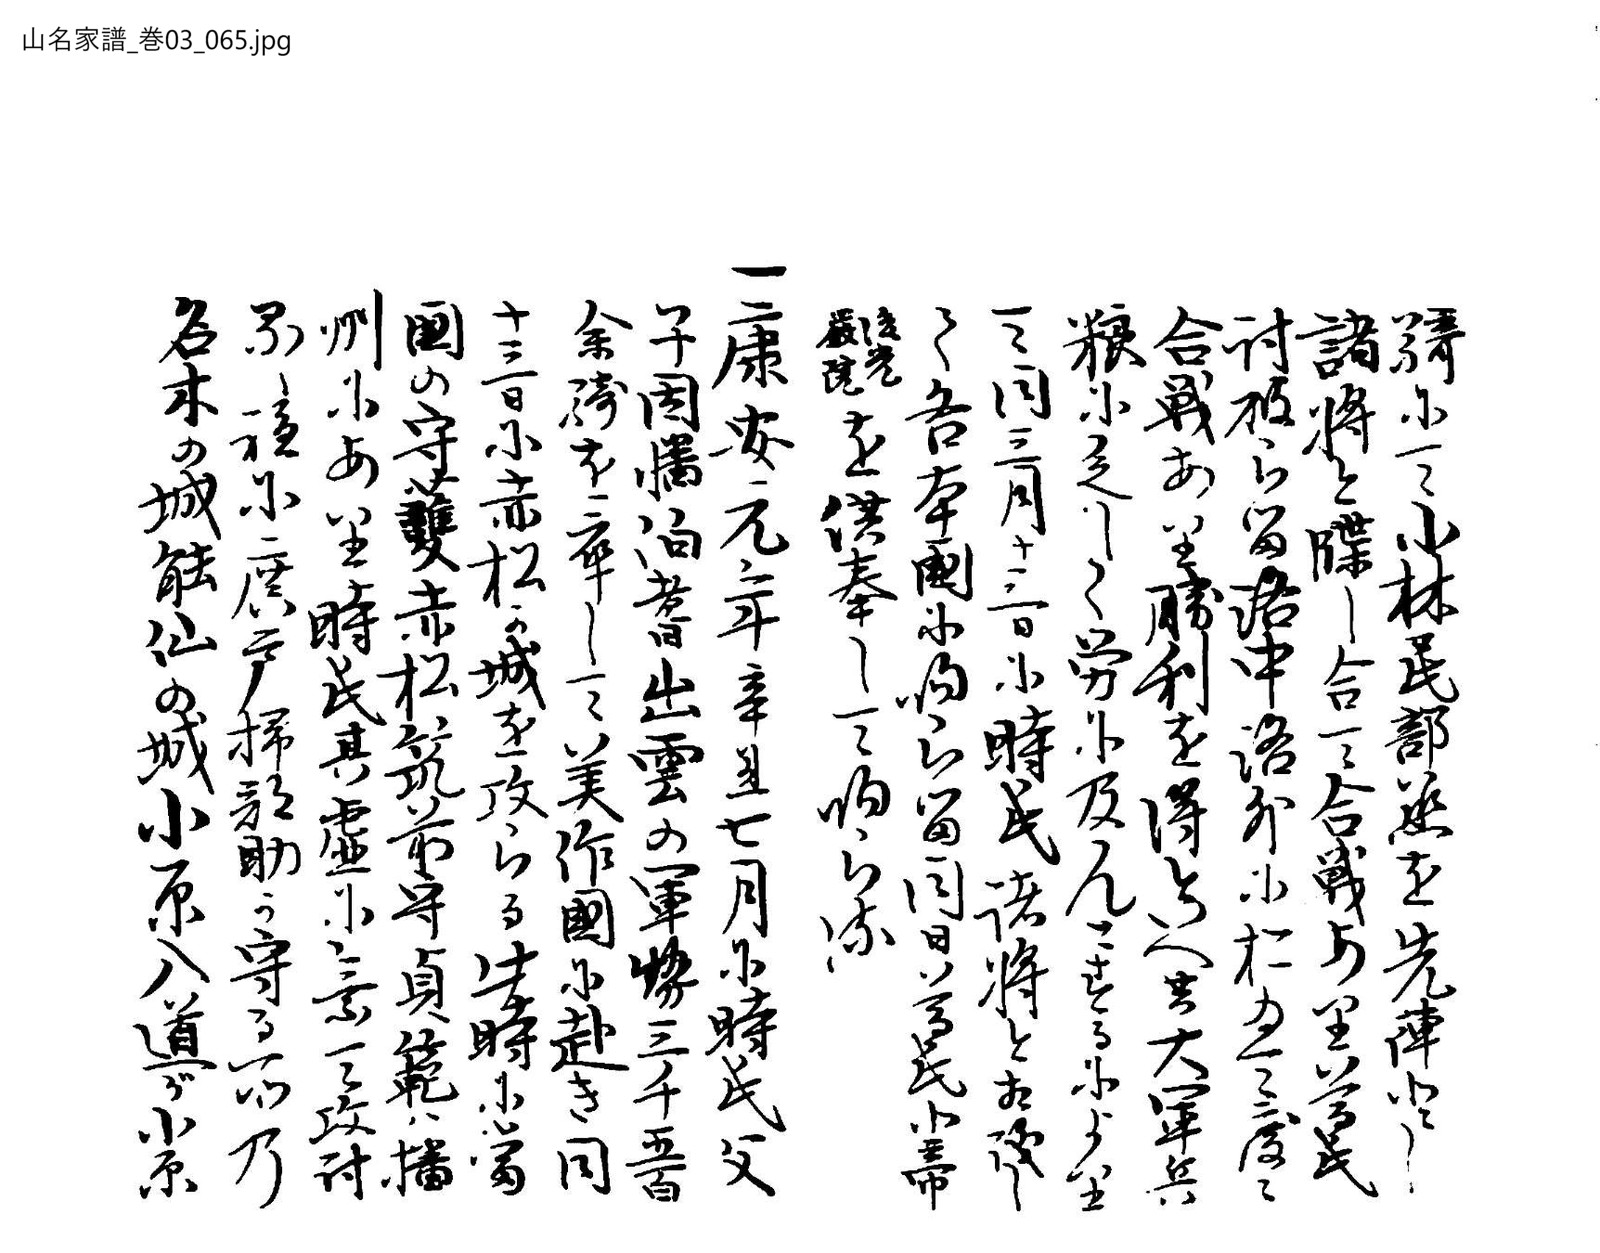 山名家譜_巻03_065.jpg
騎にて小林民部丞を先陣とし
諸将と牒し合て合戦あり尊氏
討破られ洛中洛外に於る三度の
合戦あり勝利を得といへ共大軍兵
粮に足しく労に及んとするにより
て同三月十三日に時氏諸将と相議し
て各本国に帰らる同日尊氏小帝
後光厳院を供奉して帰らる
一康安元年辛丑七月に時氏父
子因幡伯耆出雲の軍勢三千五百
余騎を率して美作国に赴き同
十三日に赤松か城を攻らる此時に当
国の守護赤松筑前守貞範は播
州にあり時氏其虚に乗て攻討
る程に広戸掃部助か守る所乃
名木の城能仙の城小原入道が小原